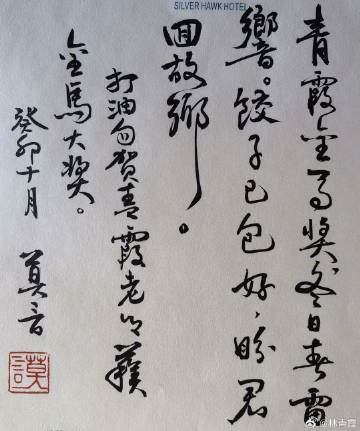 SILVER HAWK HOTEL
青霞金马奖冬日春雷
響。餃子已包好，盼君
回故鄉。
打油句贺青霞老师獲
金馬大奖。
癸卯十月 莫言
謨
@林青霞